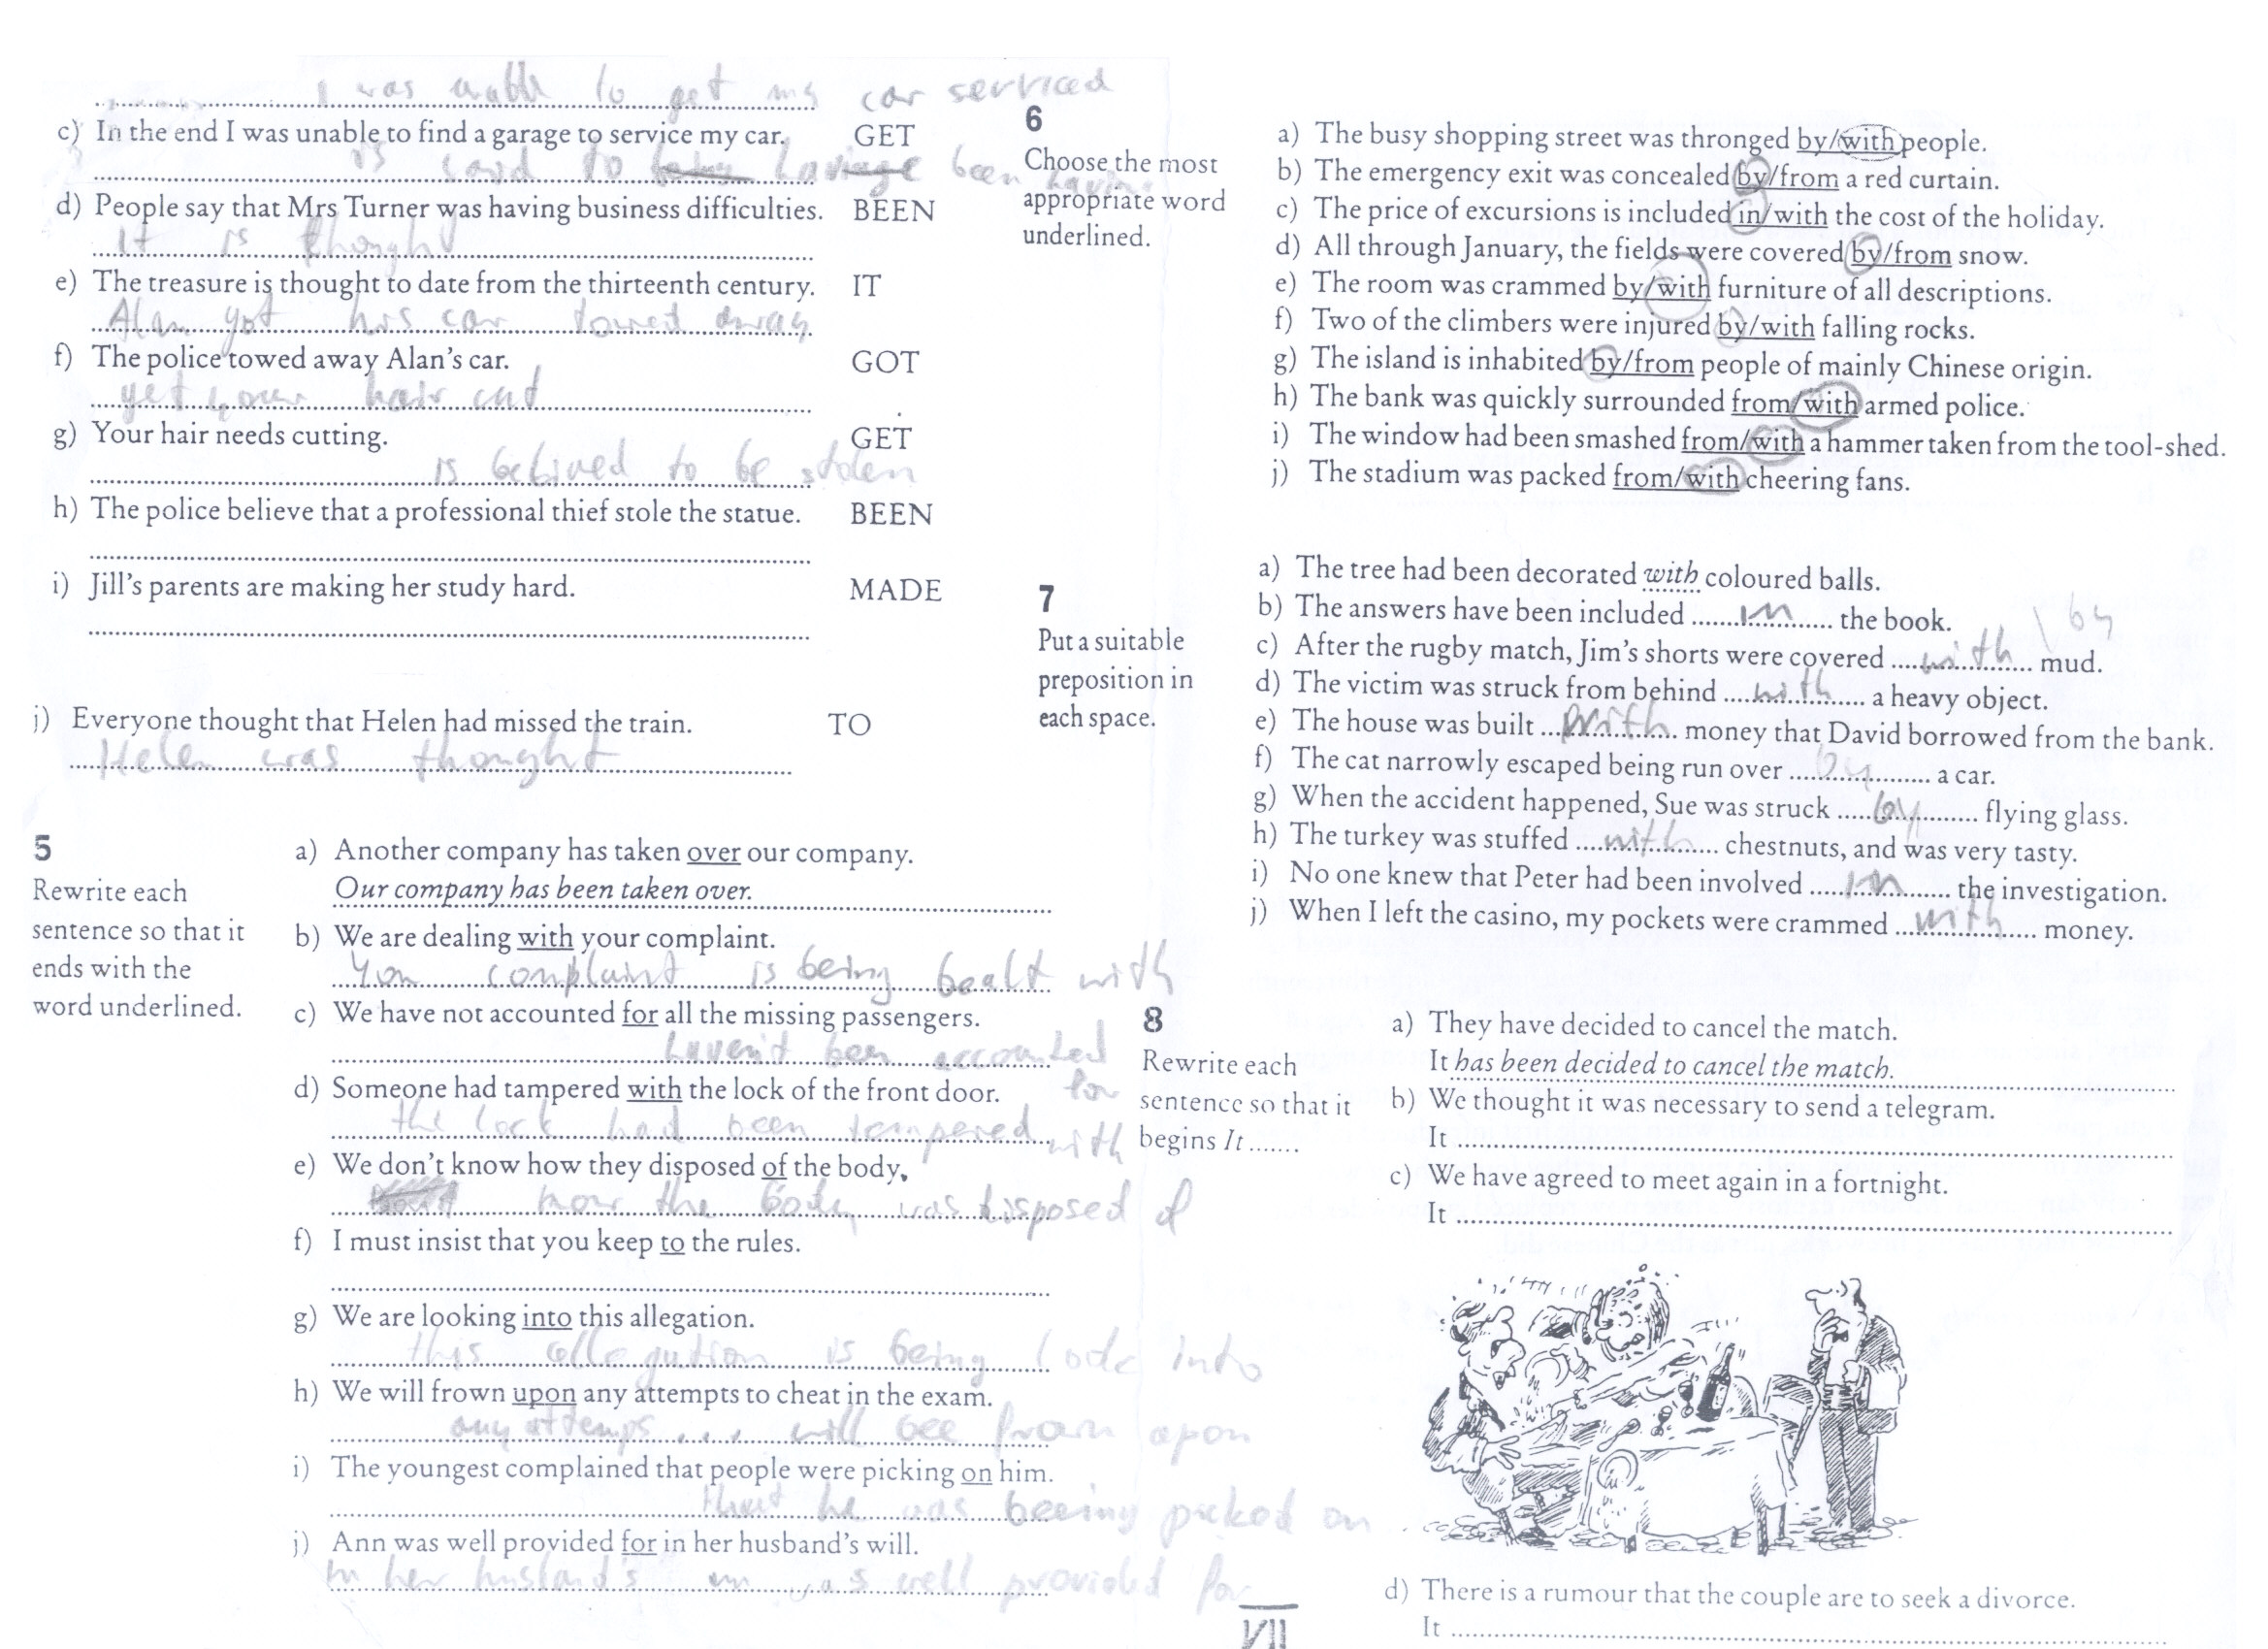 I was unable to get my car serviced
c) In the end I was unable to find a garage to service my car. GET
is said to been having
d) People say that Mrs Turner was having business difficulties. BEEN
It is thought
e) The treasure is thought to date from the thirteenth century. IT
Alan got his car towed away
f) The police towed away Alan's car. GOT
get your hair cut
g) Your hair needs cutting. GET
is belived to be stolen
h) The police believe that a professional thief stole the statue. BEEN
i) Jill's parents are making her study hard. MADE
j) Everyone thought that Helen had missed the train. TO
Helen was thought
5
Rewrite each
sentence so that it
ends with the
word underlined.
a) Another company has taken over our company.
Our company has been taken over.
b) We are dealing with your complaint.
You complaint is being bealt with
c) We have not accounted for all the missing passengers.
haven't been accounted
for
d) Someone had tampered with the lock of the front door.
the lock had been tempered with
e) We don't know how they disposed of the body.
how the body was disposed of
f) I must insist that you keep to the rules.
g) We are looking into this allegation.
this allegation is being into
h) We will frown upon any attempts to cheat in the exam.
any attemps ... will bee upon
i) The youngest complained that people were picking on him.
that he was beeing picked on
j) Ann was well provided for in her husband's will.
In her husband's well provided for
6
Choose the most
appropriate word
underlined.
a) The busy shopping street was thronged by/with people.
b) The emergency exit was concealed by/from a red curtain.
c) The price of excursions is included in/with the cost of the holiday.
d) All through January, the fields were covered by/from snow.
e) The room was crammed by/with furniture of all descriptions.
f) Two of the climbers were injured by/with falling rocks.
g) The island is inhabited by/from people of mainly Chinese origin.
h) The bank was quickly surrounded from/with armed police.
i) The window had been smashed from/with a hammer taken from the tool-shed.
j) The stadium was packed from/with cheering fans.
7
Put a suitable
preposition in
each space.
a) The tree had been decorated with coloured balls.
b) The answers have been included in the book.
c) After the rugby match, Jim's shorts were covered with mud. \ by
d) The victim was struck from behind with a heavy object.
e) The house was built with money that David borrowed from the bank.
f) The cat narrowly escaped being run over by a car.
g) When the accident happened, Sue was struck by flying glass.
h) The turkey was stuffed with chestnuts, and was very tasty.
i) No one knew that Peter had been involved in the investigation.
j) When I left the casino, my pockets were crammed with money.
8
Rewrite each
sentence so that it
begins It .......
a) They have decided to cancel the match.
It has been decided to cancel the match.
b) We thought it was necessary to send a telegram.
It
c) We have agreed to meet again in a fortnight.
It
d) There is a rumour that the couple are to seek a divorce.
It
VII